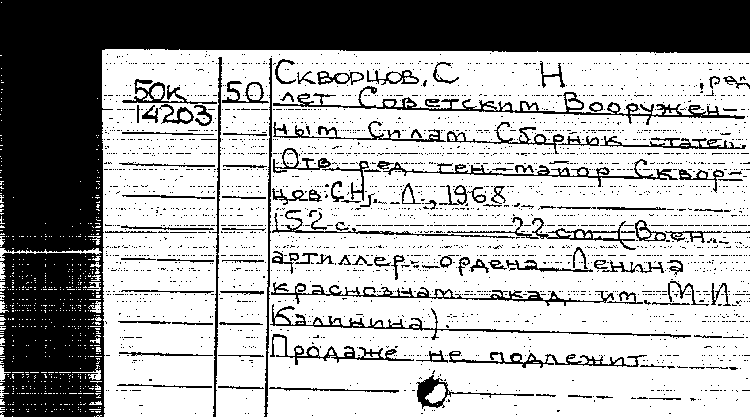 Скворцов, С Н , ред
50к 50 лет Советским Вооружен-
14203 ным Силам. Сборник статей.
[Отв. ред. ген-майор Сквор-
цов С.Н]. Л., 1968.
152 с. 22 см. (Воен.
артиллер. ордена Ленина
краснознам. акад. им. М.И.
Калинина).
Продаже не подлежит.